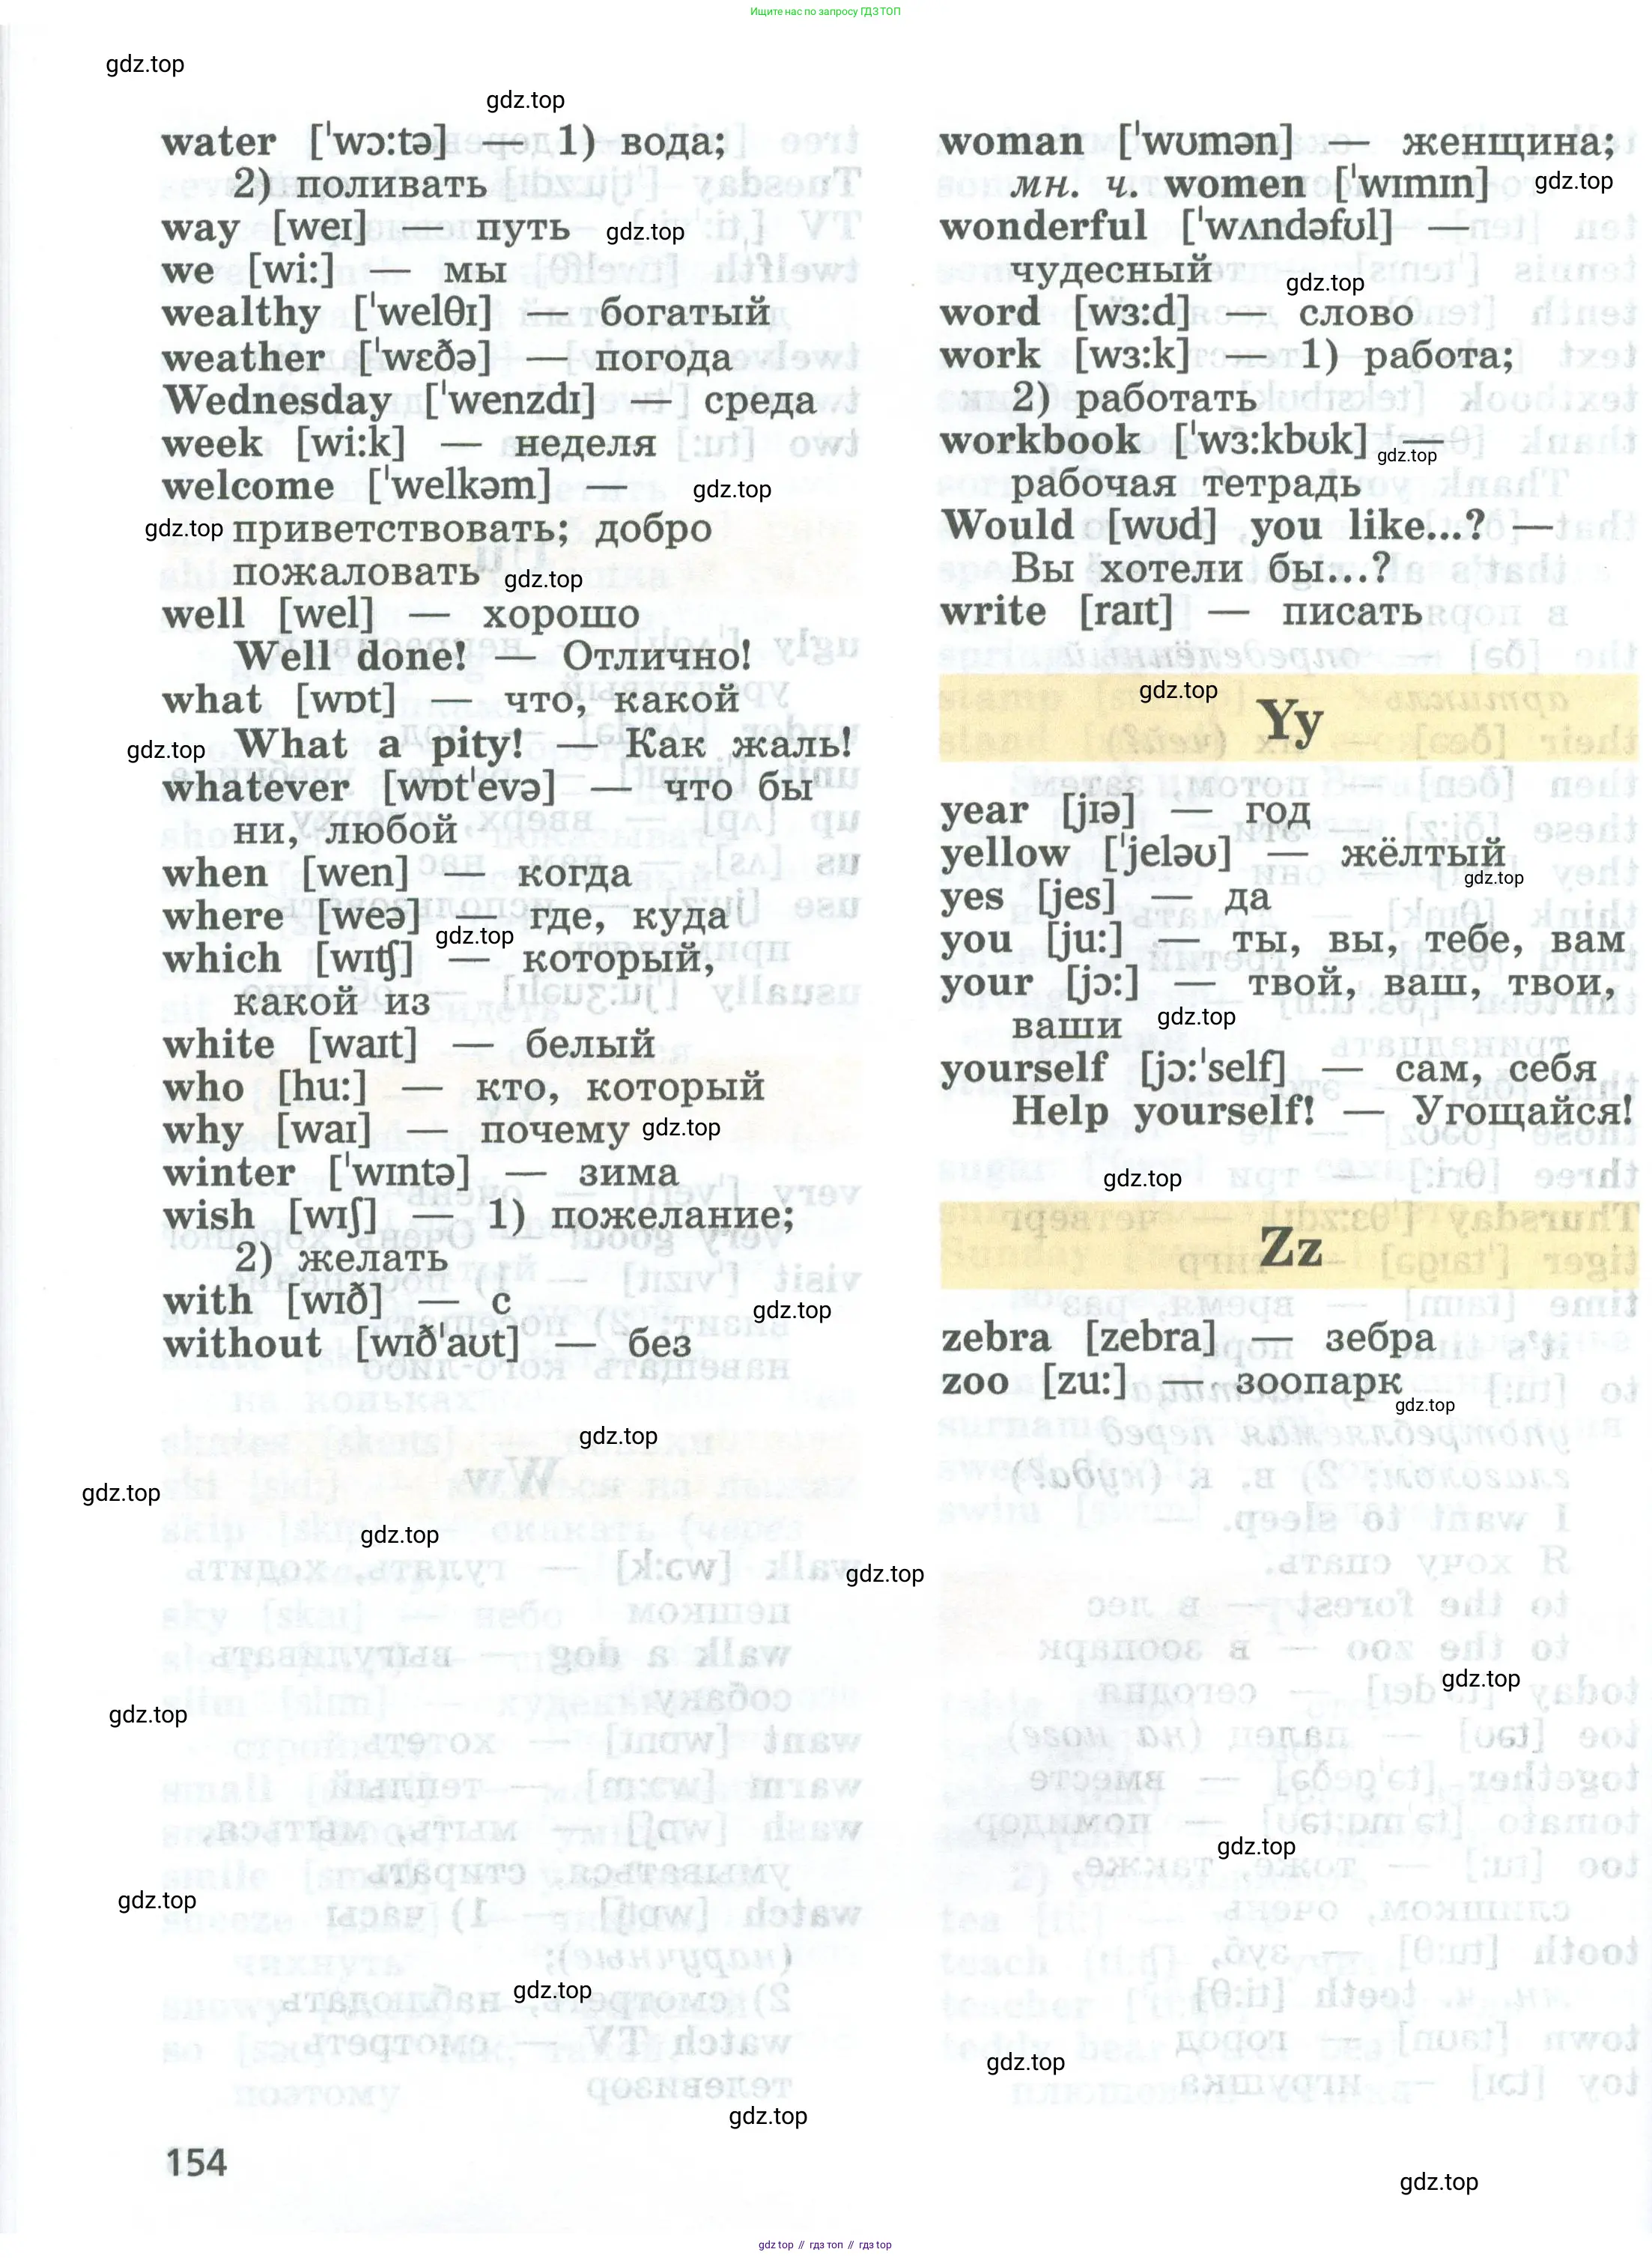 Ищите нас по запросу ГДЗ ТОП
gdz.top
gdz.top
water [ˈwɔ:tə] — 1) вода;
2) поливать
way [weɪ] — путь gdz.top
we [wi:] — мы
wealthy [ˈwelθɪ] — богатый
weather [ˈwɛðə] — погода
Wednesday [ˈwenzdɪ] — среда
week [wi:k] — неделя
welcome [ˈwelkəm] — gdz.top
gdz.top приветствовать; добро
пожаловать gdz.top
well [wel] — хорошо
Well done! — Отлично!
what [wɒt] — что, какой
gdz.top What a pity! — Как жаль!
whatever [wɒtˈevə] — что бы
ни, любой
when [wen] — когда
where [weə] — где, куда
gdz.top
which [wɪʧ] — который,
какой из
white [waɪt] — белый
who [hu:] — кто, который
why [waɪ] — почему gdz.top
winter [ˈwɪntə] — зима
wish [wɪʃ] — 1) пожелание;
2) желать
with [wɪð] — с gdz.top
without [wɪðˈaʊt] — без
gdz.top
gdz.top
gdz.top
gdz.top
gdz.top
gdz.top
gdz.top
gdz.top
154
woman [ˈwʊmən] — женщина;
мн. ч. women [ˈwɪmɪn] gdz.top
wonderful [ˈwʌndəfʊl] —
чудесный gdz.top
word [wɜ:d] — слово
work [wɜ:k] — 1) работа;
2) работать
workbook [ˈwɜ:kbʊk] —
gdz.top
рабочая тетрадь
Would [wʊd] you like...? —
Вы хотели бы...?
write [raɪt] — писать
gdz.top
Yy
year [jɪə] — год
yellow [ˈjeləʊ] — жёлтый
gdz.top
yes [jes] — да
you [ju:] — ты, вы, тебе, вам
your [jɔ:] — твой, ваш, твои,
ваши gdz.top
yourself [jɔ:ˈself] — сам, себя
Help yourself! — Угощайся!
gdz.top
Zz
zebra [zebra] — зебра
zoo [zu:] — зоопарк
gdz.top
gdz.top
gdz.top
gdz.top
gdz.top
gdz top // гдз топ // гдз top